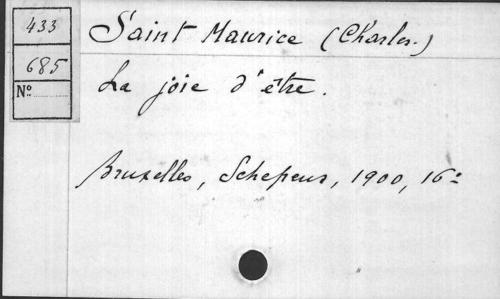 433
Saint Maurice (Charles.)
685
La joie d'être.
No
Bruxelles, Schepens, 1900, 16°